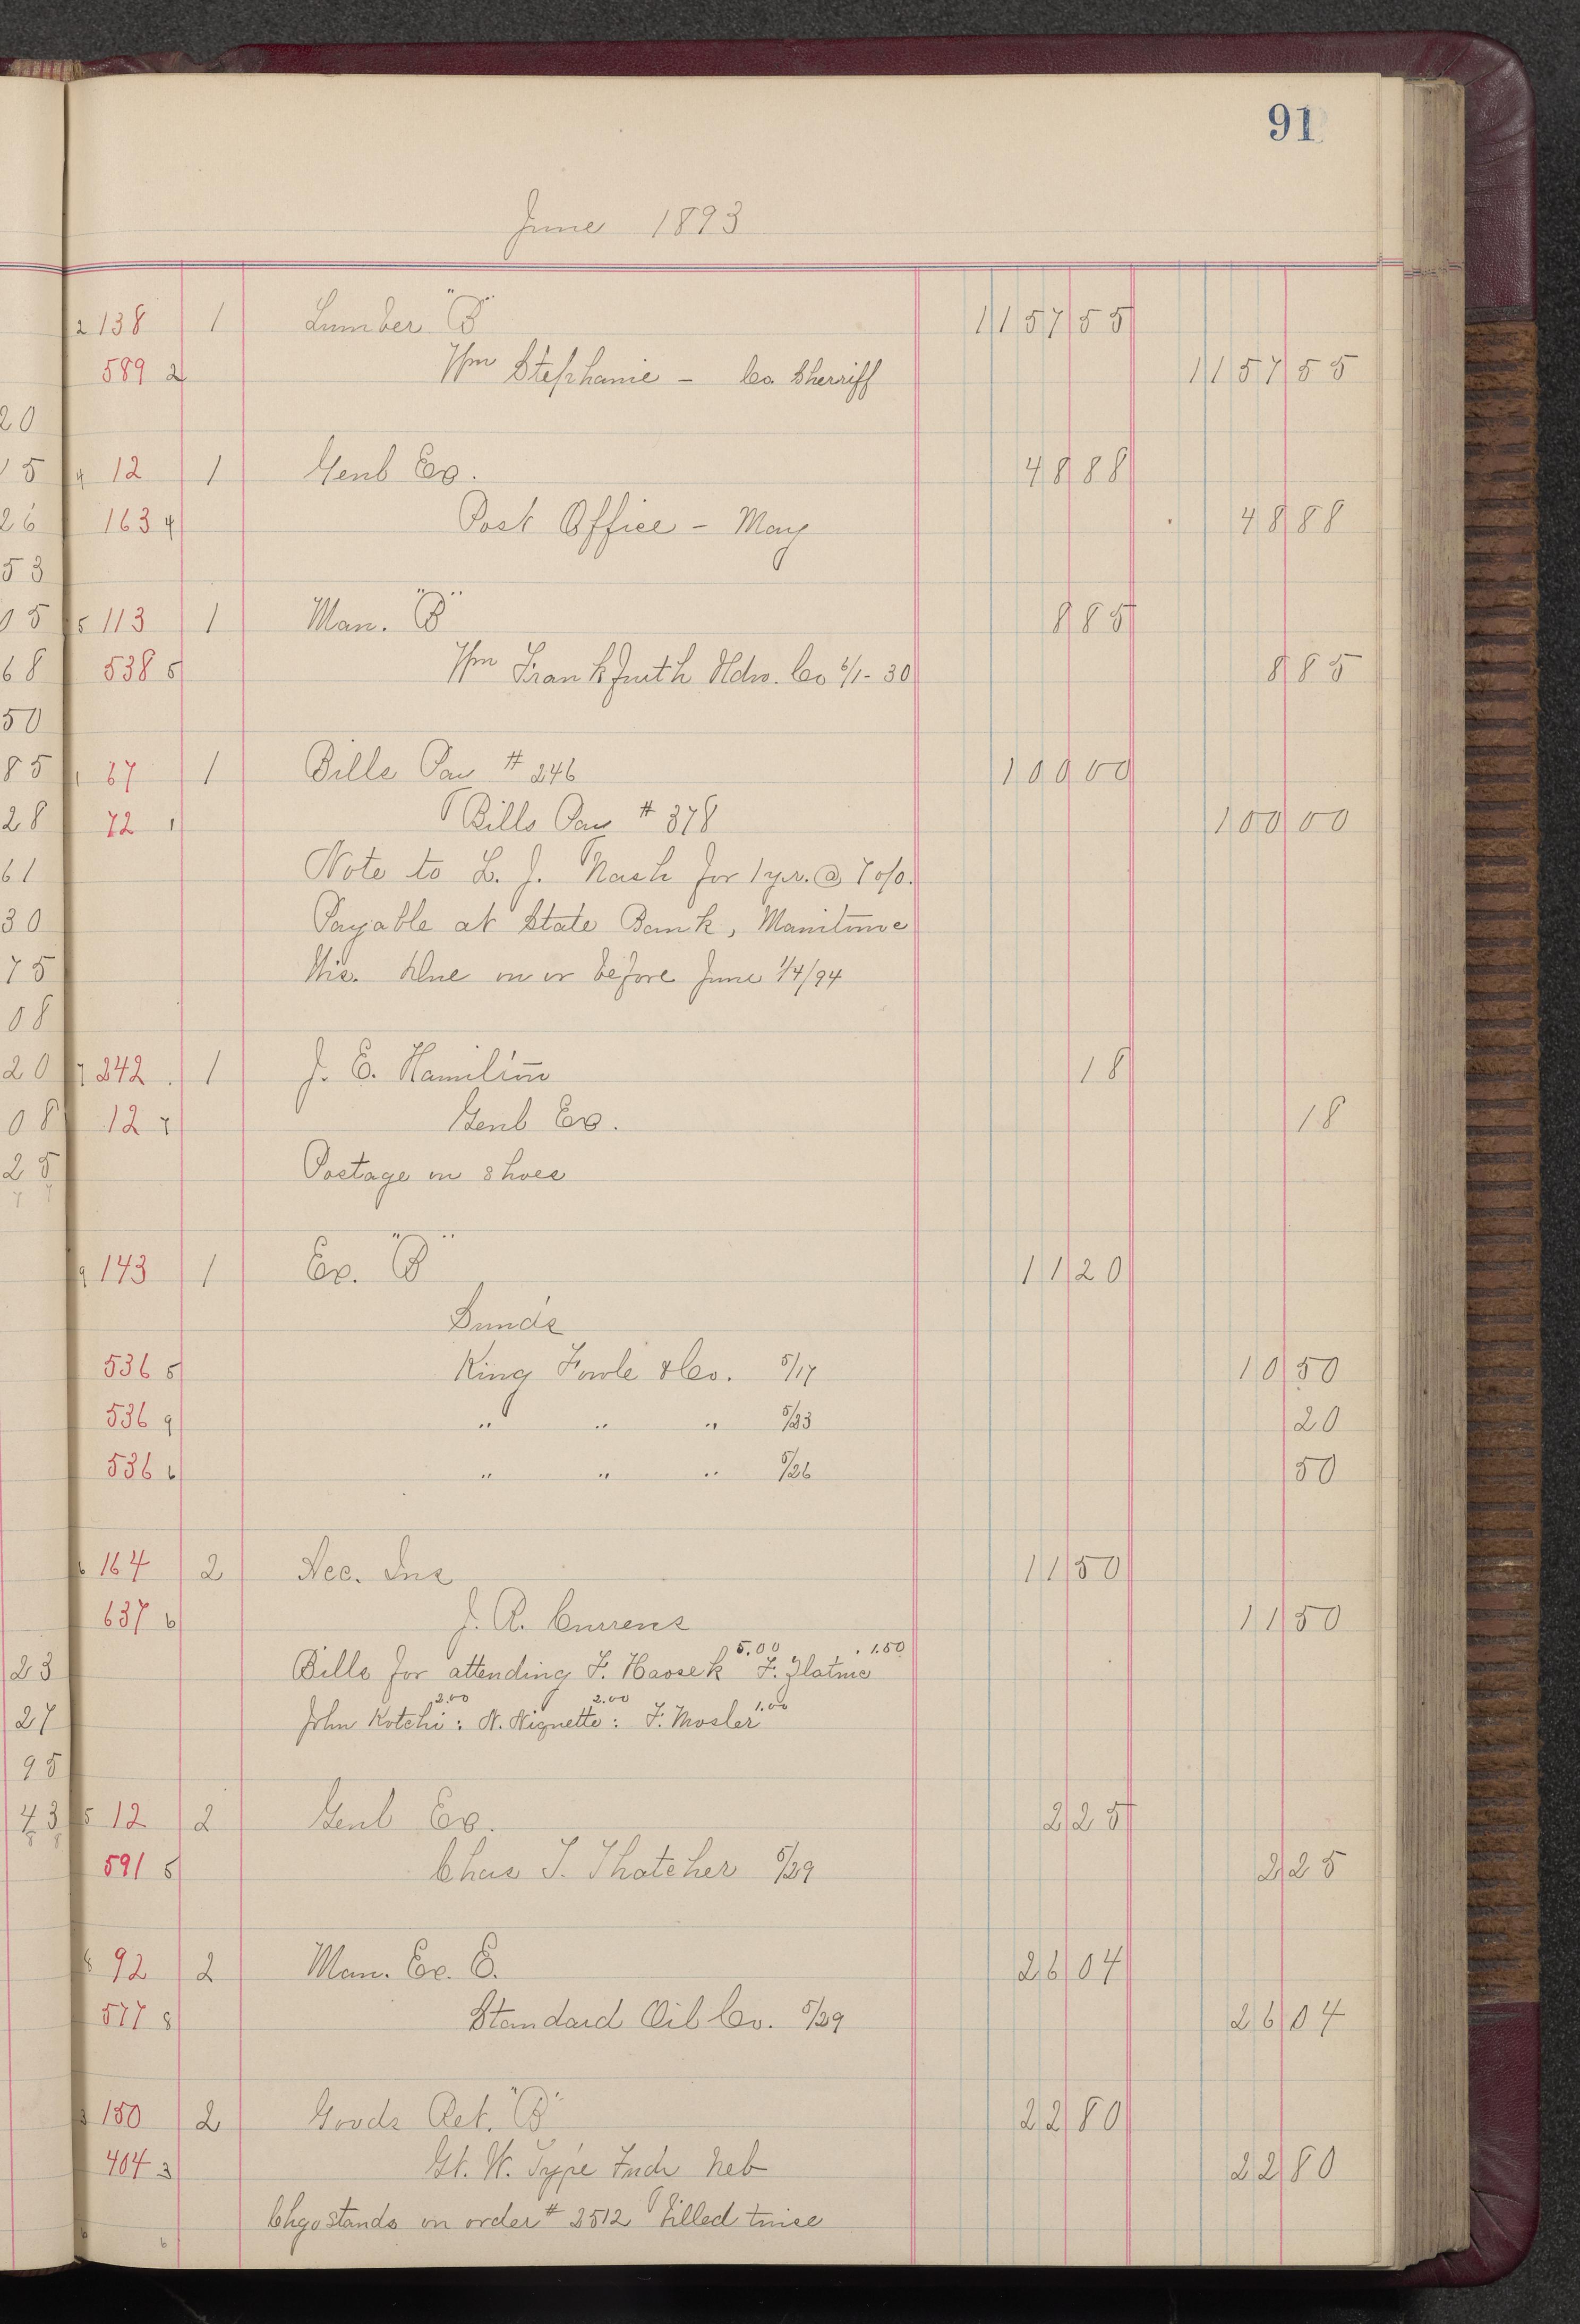 91
June 1893
2 138 1 Lumber "B" 1157 55
589 2 Wm Stephanie - Co. Sherriff 1157 55
20
15 4 12 1 Genl Ex. 48 88
26 163 4 Post Office - May 48 88
53
05 5 113 1 Man. "B" 8 85
68 538 5 Wm Frankfurth Hdw. Co 5/1-30 8 85
50
85 1 67 1 Bills Pay # 246 100 00
28 72 1 Bills Pay # 378 100 00
61 Note to L. J. Nash for 1 yr. @ 7 o/o.
30 Payable at State Bank, Manitowoc
75 Wis. Due on or before June 1/4/94
08
20 7 242 1 J. E. Hamilton 18
08 12 7 Genl Ex. 18
25 Postage on shoes
9 143 1 Ex. "B" 11 20
Sunds
536 5 King Fowle & Co. 5/17 10 50
536 9 " " " 5/23 20
536 6 " " " 5/26 50
6 164 2 Acc. Ins 11 50
637 6 J. R. Currens 11 50
5.00 1.50
23 Bills for attending F. Havsek F. Zlatnic
2.00 2.00 1.00
27 John Kotchi : N. Niquette : F. Mosler
95
43 5 12 2 Genl Ex. 2 25
591 5 Chas T. Thatcher 5/29 2 25
8 92 2 Man. Ex. E. 26 04
577 8 Standard Oil Co. 5/29 26 04
3 150 2 Goods Ret. "B" 22 80
404 3 Gt. W. Type Fndr Neb 22 80
Chgo stands on order # 2512 filled twice